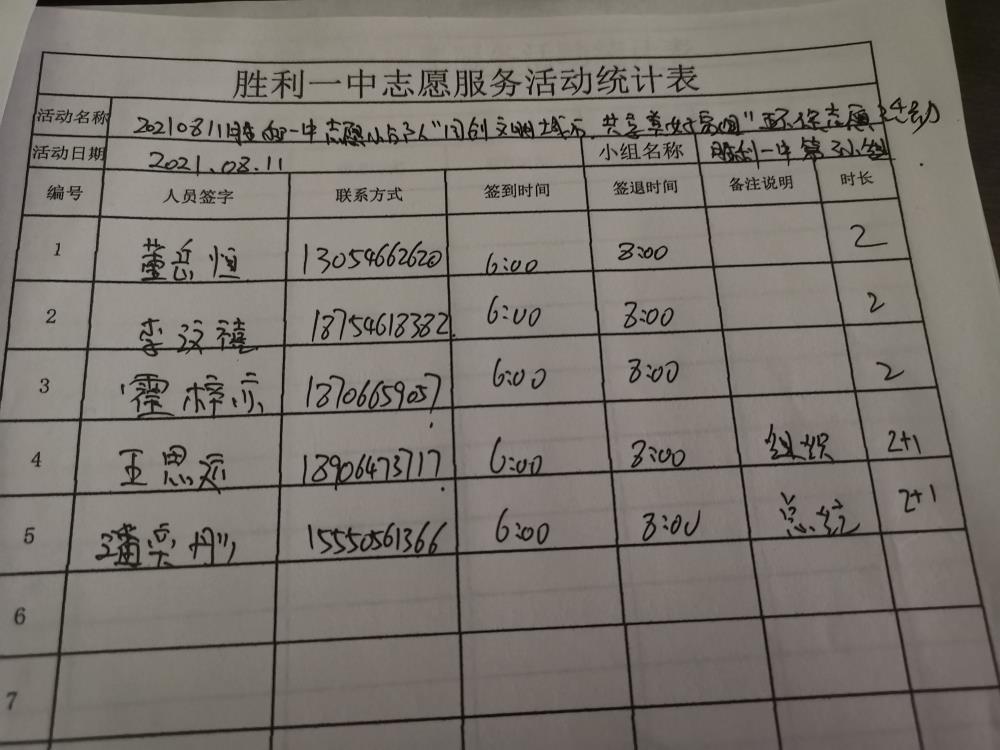 胜利一中志愿服务活动统计表
活动名称 20210811胜利一中志愿 "同创文明城市,共享美好家园"环保志愿活动
活动日期 2021.08.11 小组名称 胜利一中第 小组
编号 人员签字 联系方式 签到时间 签退时间 备注说明 时长
1 董岳恒 13054662620 6:00 8:00 2
2 李汶禧 18754618382 6:00 8:00 2
3 霍梓 18706659057 6:00 8:00 2
4 王思 18906473717 6:00 8:00 组织 2+1
5 丹 15550561366 6:00 8:00 总结 2+1
6
7